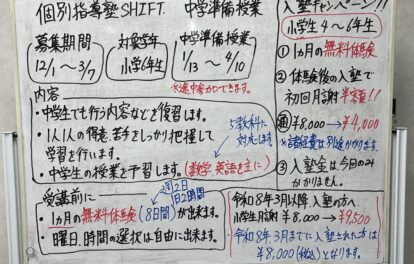 個別指導塾SHIFT. 中学準備授業
募集期間
12/1〜3/7
対象学年
小学6年生
中学準備授業
1/13 〜 4/10
※途中参加できます。
内容
・中学生でも行う内容などを復習します。
・1人1人の得意、苦手をしっかり把握して
学習を行います。
・中学生の授業を予習します。(数学、英語を主に)
5教科に
対応します。
受講前に
・1ヵ月の無料体験(8日間)が出来ます。
週2日
1日2時間
・曜日、時間の選択は自由に出来ます。
入塾キャンペーン!!
小学生4〜6年生
①1ヵ月の無料体験
②体験後の入塾で
初回月謝半額!!
¥8,000→¥4,000
※諸経費は別途かかります。
③入塾金は、今回のみ
かかりません。
令和8年3月以降、入塾の方へ
小学生月謝¥8,000→¥9,500
令和8年3月までに入塾された方は
¥8,000(税込)となります。